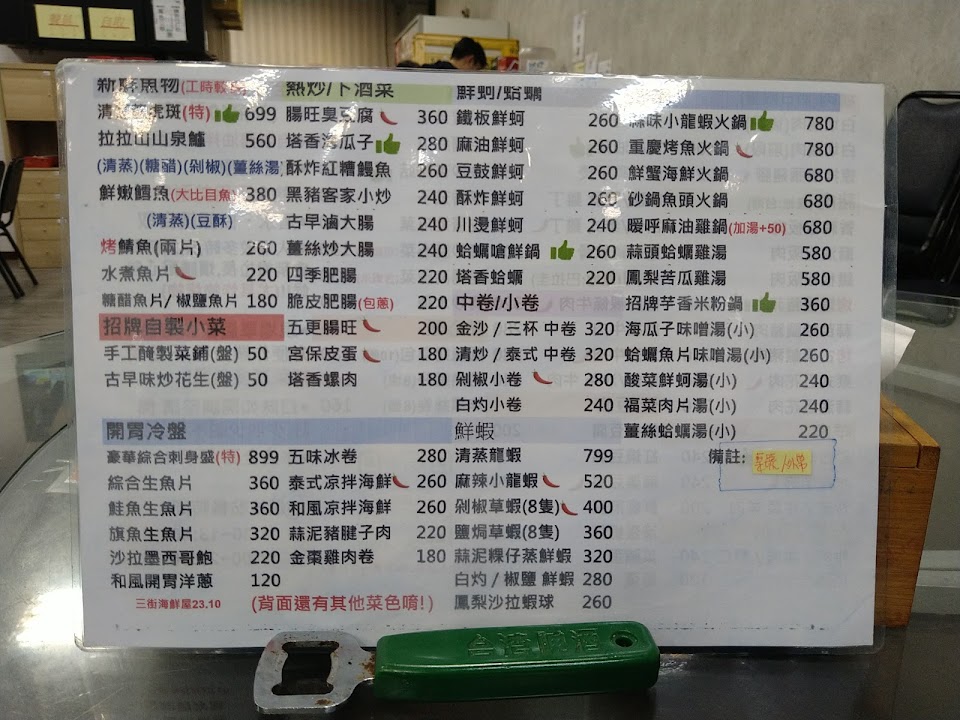 新鮮魚物(工時較長)
清蒸 虎斑(特) 699
拉拉山山泉鱸 560
(清蒸)(糖醋)(剁椒)(薑絲湯)
鮮嫩鱈魚(大比目魚) 380
(清蒸)(豆酥)
烤鯖魚(兩片) 260
水煮魚片 220
糖醋魚片/椒鹽魚片 180
招牌自製小菜
手工醃製菜餔(盤) 50
古早味炒花生(盤) 50
熱炒/下酒菜
腸旺臭豆腐 360
塔香海瓜子 280
酥炸紅糟鰻魚 260
黑豬客家小炒 240
古早滷大腸 240
薑絲炒大腸 240
四季肥腸 220
脆皮肥腸(包蔥) 220
五更腸旺 200
宮保皮蛋 180
塔香螺肉 180
鮮蚵/蛤蠣
鐵板鮮蚵 260
麻油鮮蚵 260
豆鼓鮮蚵 260
酥炸鮮蚵 260
川燙鮮蚵 240
蛤蠣嗆鮮鍋 260
塔香蛤蠣 220
中卷/小卷
金沙/三杯 中卷 320
清炒/泰式 中卷 320
剁椒小卷 280
白灼小卷 240
蒜味小龍蝦火鍋 780
重慶烤魚火鍋 780
鮮蟹海鮮火鍋 680
砂鍋魚頭火鍋 680
暖呼麻油雞鍋(加湯+50) 680
蒜頭蛤蠣雞湯 580
鳳梨苦瓜雞湯 580
招牌芋香米粉鍋 360
海瓜子味噌湯(小) 260
蛤蠣魚片味噌湯(小) 260
酸菜鮮蚵湯(小) 240
福菜肉片湯(小) 240
薑絲蛤蠣湯(小) 220
備註:
開胃冷盤
豪華綜合刺身盛(特) 899
綜合生魚片 360
鮭魚生魚片 360
旗魚生魚片 320
沙拉墨西哥鮑 220
和風開胃洋蔥 120
五味冰卷 280
泰式涼拌海鮮 260
和風涼拌海鮮 260
蒜泥豬腱子肉 220
金棗雞肉卷 180
鮮蝦
清蒸龍蝦 799
麻辣小龍蝦 520
剁椒草蝦(8隻) 400
鹽焗草蝦(8隻) 360
蒜泥粿仔蒸鮮蝦 320
白灼/椒鹽 鮮蝦 280
鳳梨沙拉蝦球 260
三街海鮮屋23.10
(背面還有其他菜色唷!)